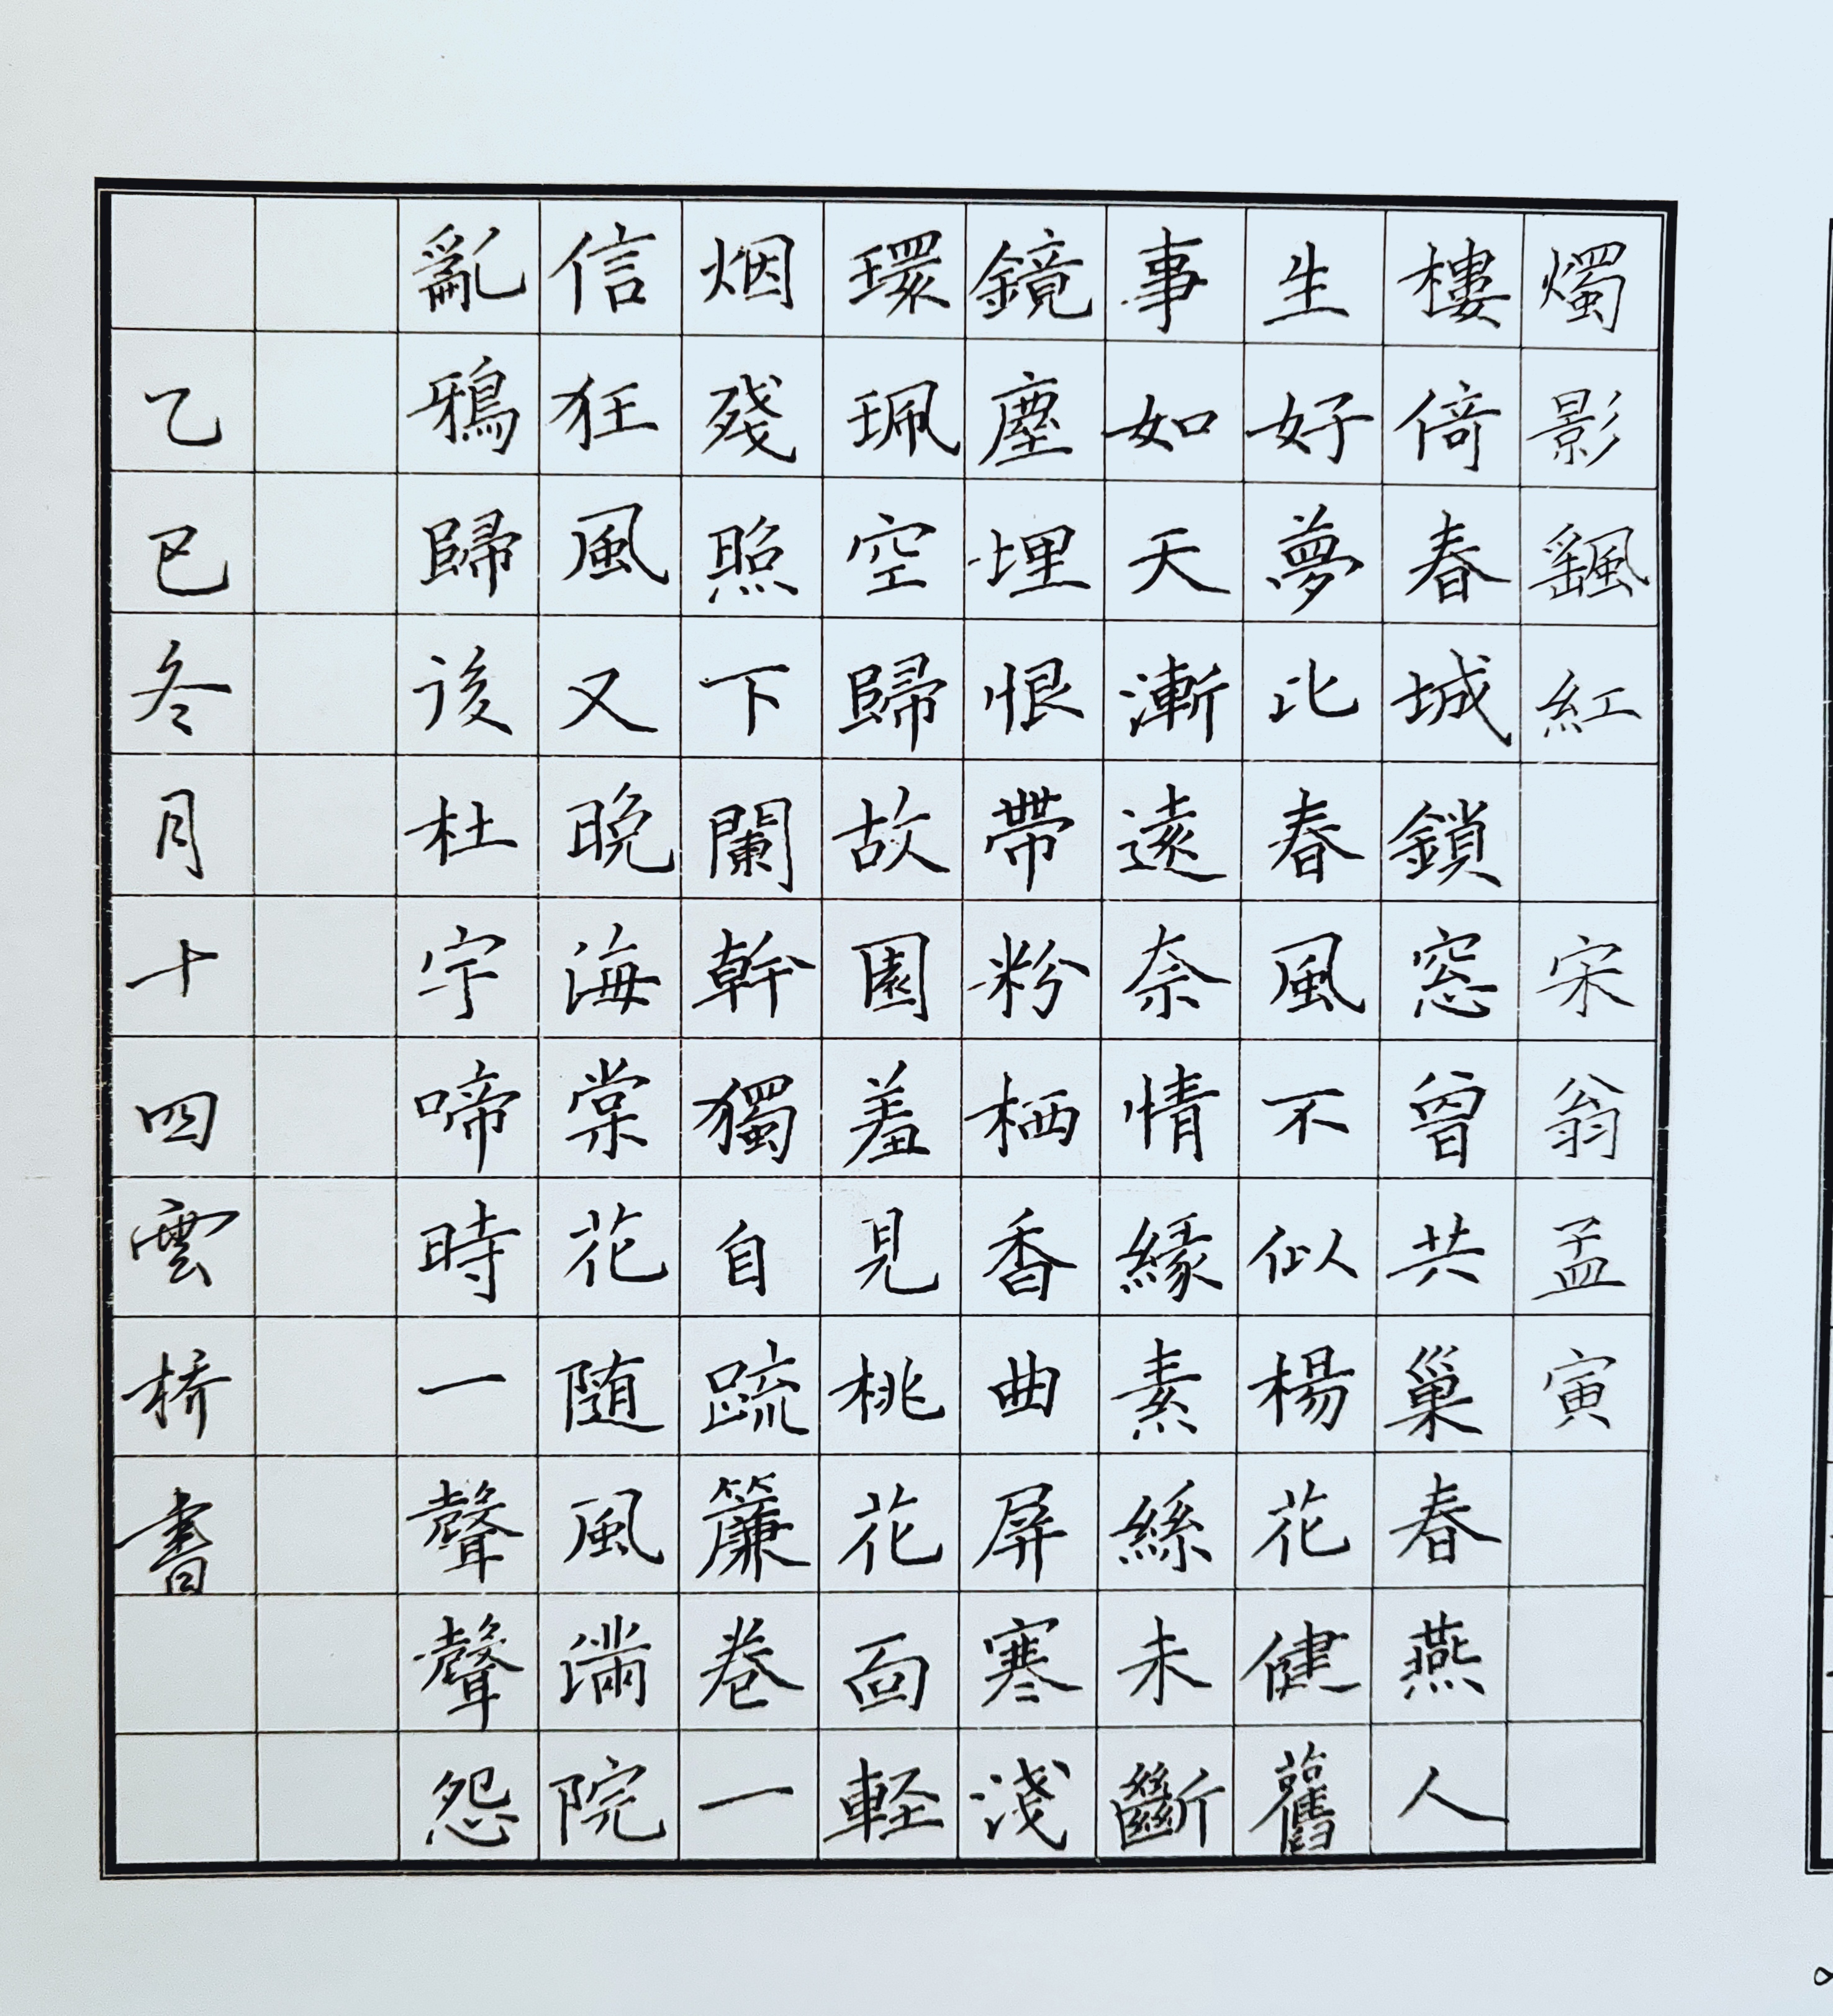 燭影飆紅 宋翁孟寅
樓倚春城鎖窓曾共巢春燕人
生好夢比春風不似楊花健舊
事如天漸遠奈情緣素絲未斷
鏡塵埋恨帶粉栖香曲屏寒淺
環珮空歸故園羞見桃花面輕
烟殘照下闌幹獨自疏簾卷一
信狂風又晚海棠花随風滿院
亂鴉歸後杜宇啼時一聲聲怨
乙巳冬月十四雲橋書